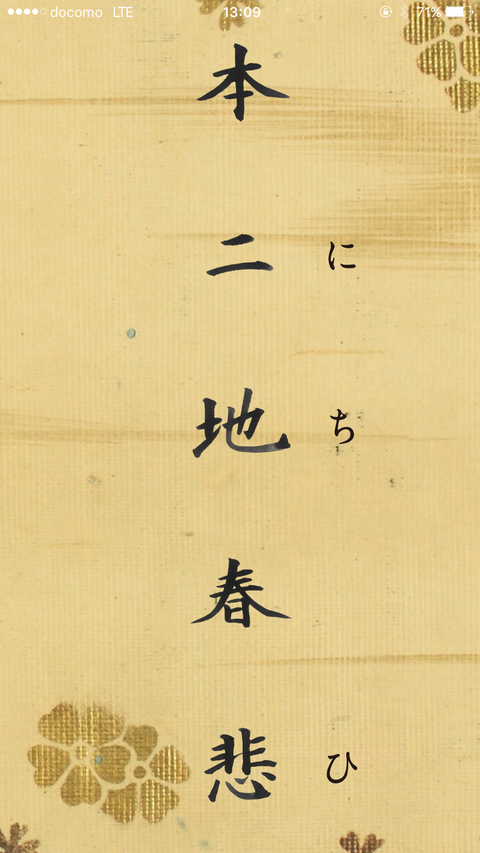 docomo LTE 13:09 71%
本
二 に
地 ち
春
悲 ひ